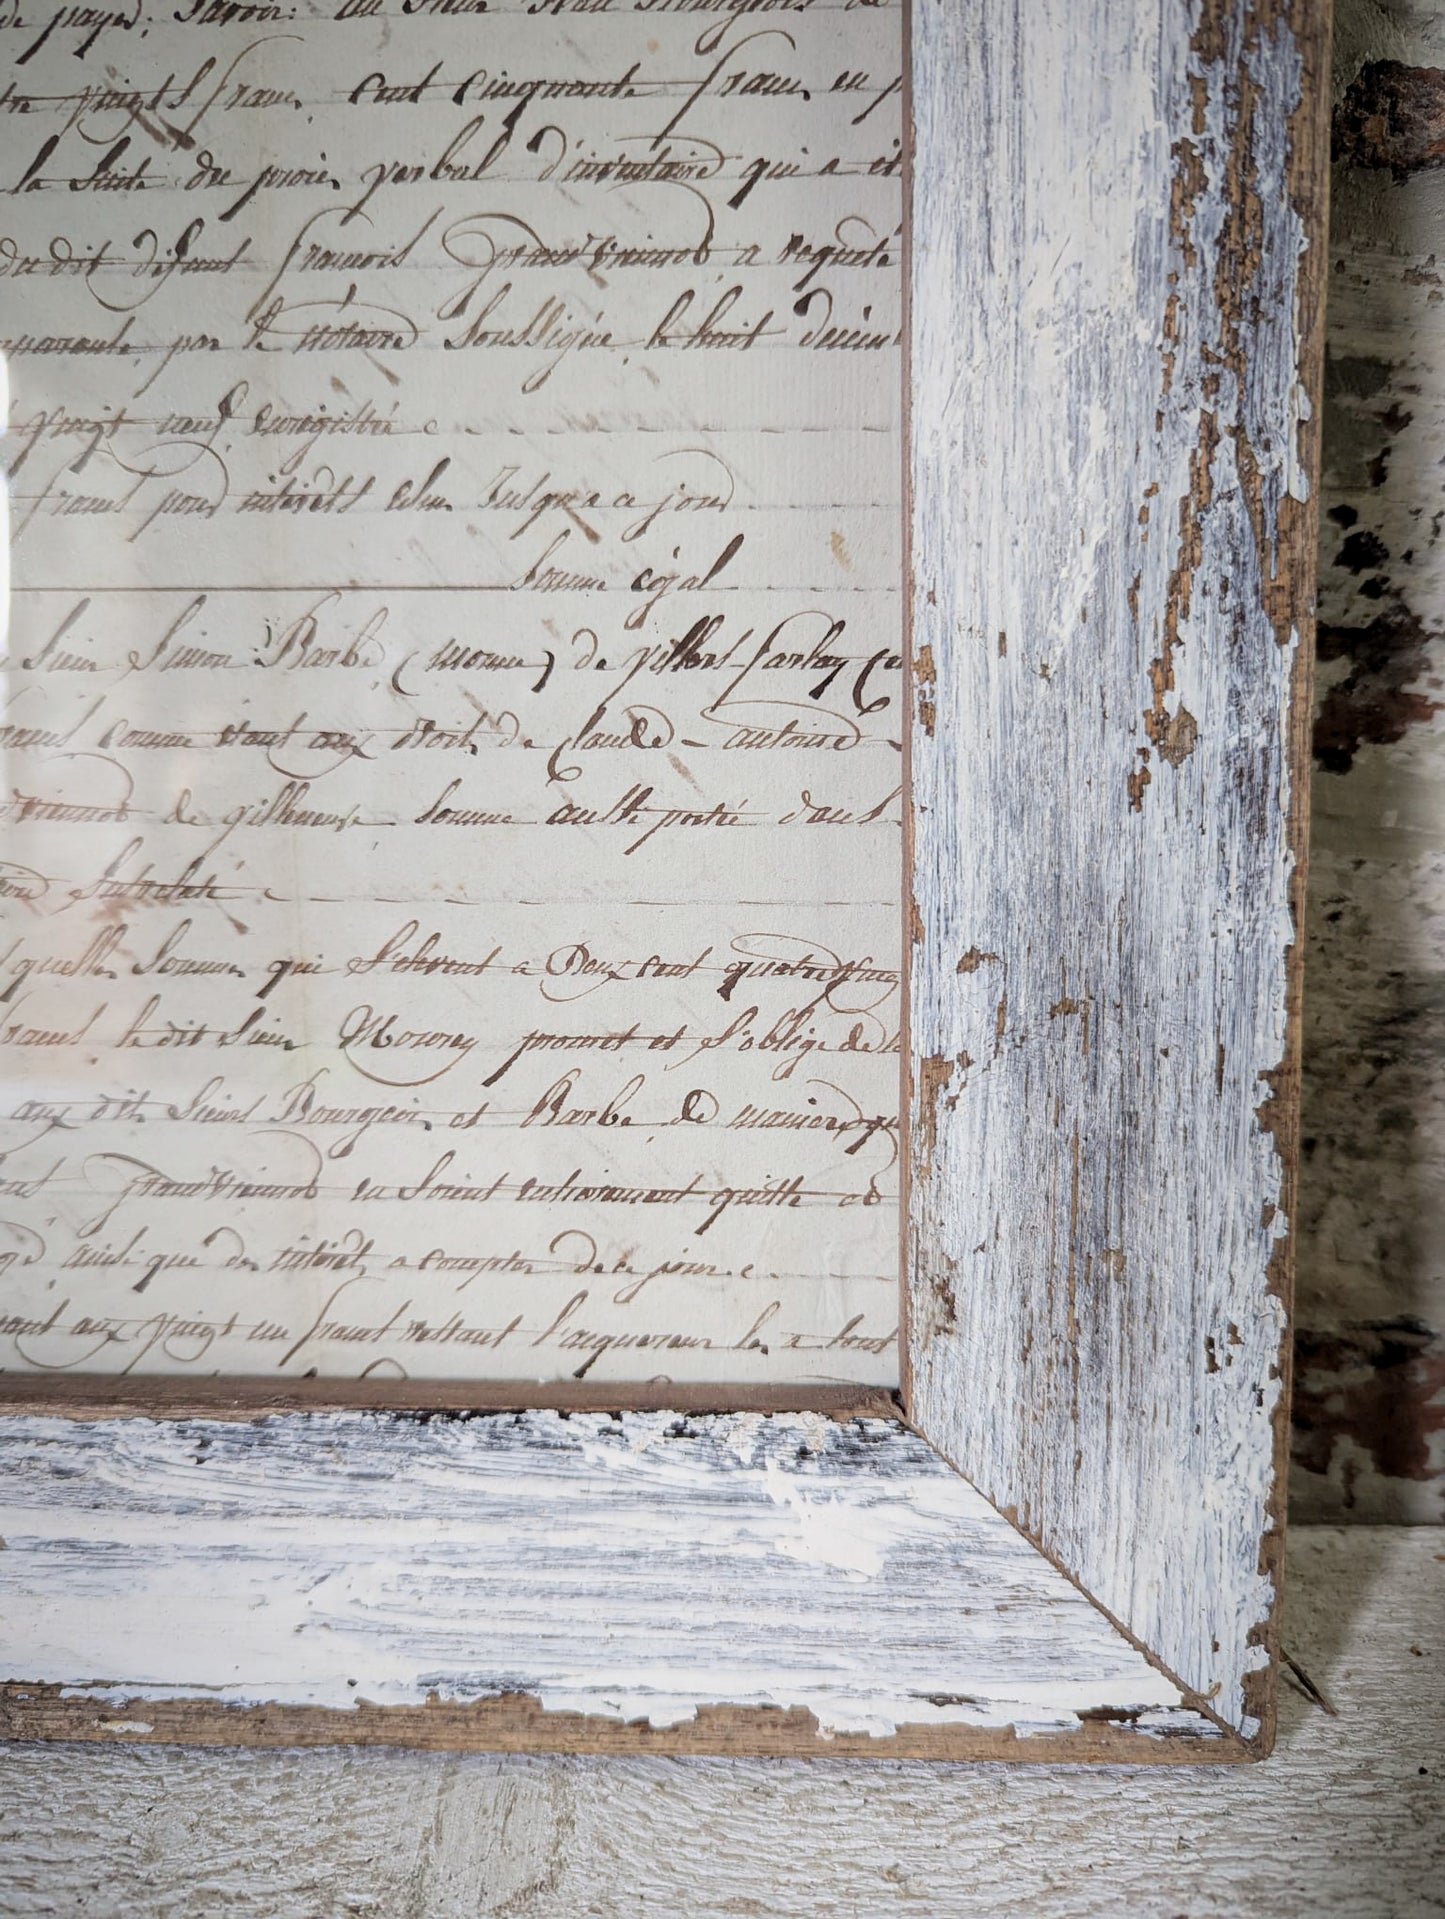 de payer, Savoir: au Sieur Bourgeois de
vingts francs, cent cinquante francs en
la Suite du procès verbal d'inventaire qui a été
du dit défunt francois Grandviennot a requete
par le nôtaire Soussigné, le huit décem
vingt neuf, enregistré
francs pour intérêts échus Jusqu'a ce jour
Somme égal
Sieur Simon Barbe, (Moine) de villers-farlay (
comme étant aux droits de Claude-antoine-
viennot de villeneuve, Somme aussi portée dans
Susrelaté
quelles Sommes qui S'elevent a Deux cent quatrevingt
francs, le dit Sieur Mourey promet et S'oblige de
aux dits Sieurs Bourgeois, et Barbe, de maniere que
Grandviennot en Soient entierement quitte et
ainsi que des intérêts, a compter de ce jour.
quant aux vingt un francs restant l'acquereur les a tout